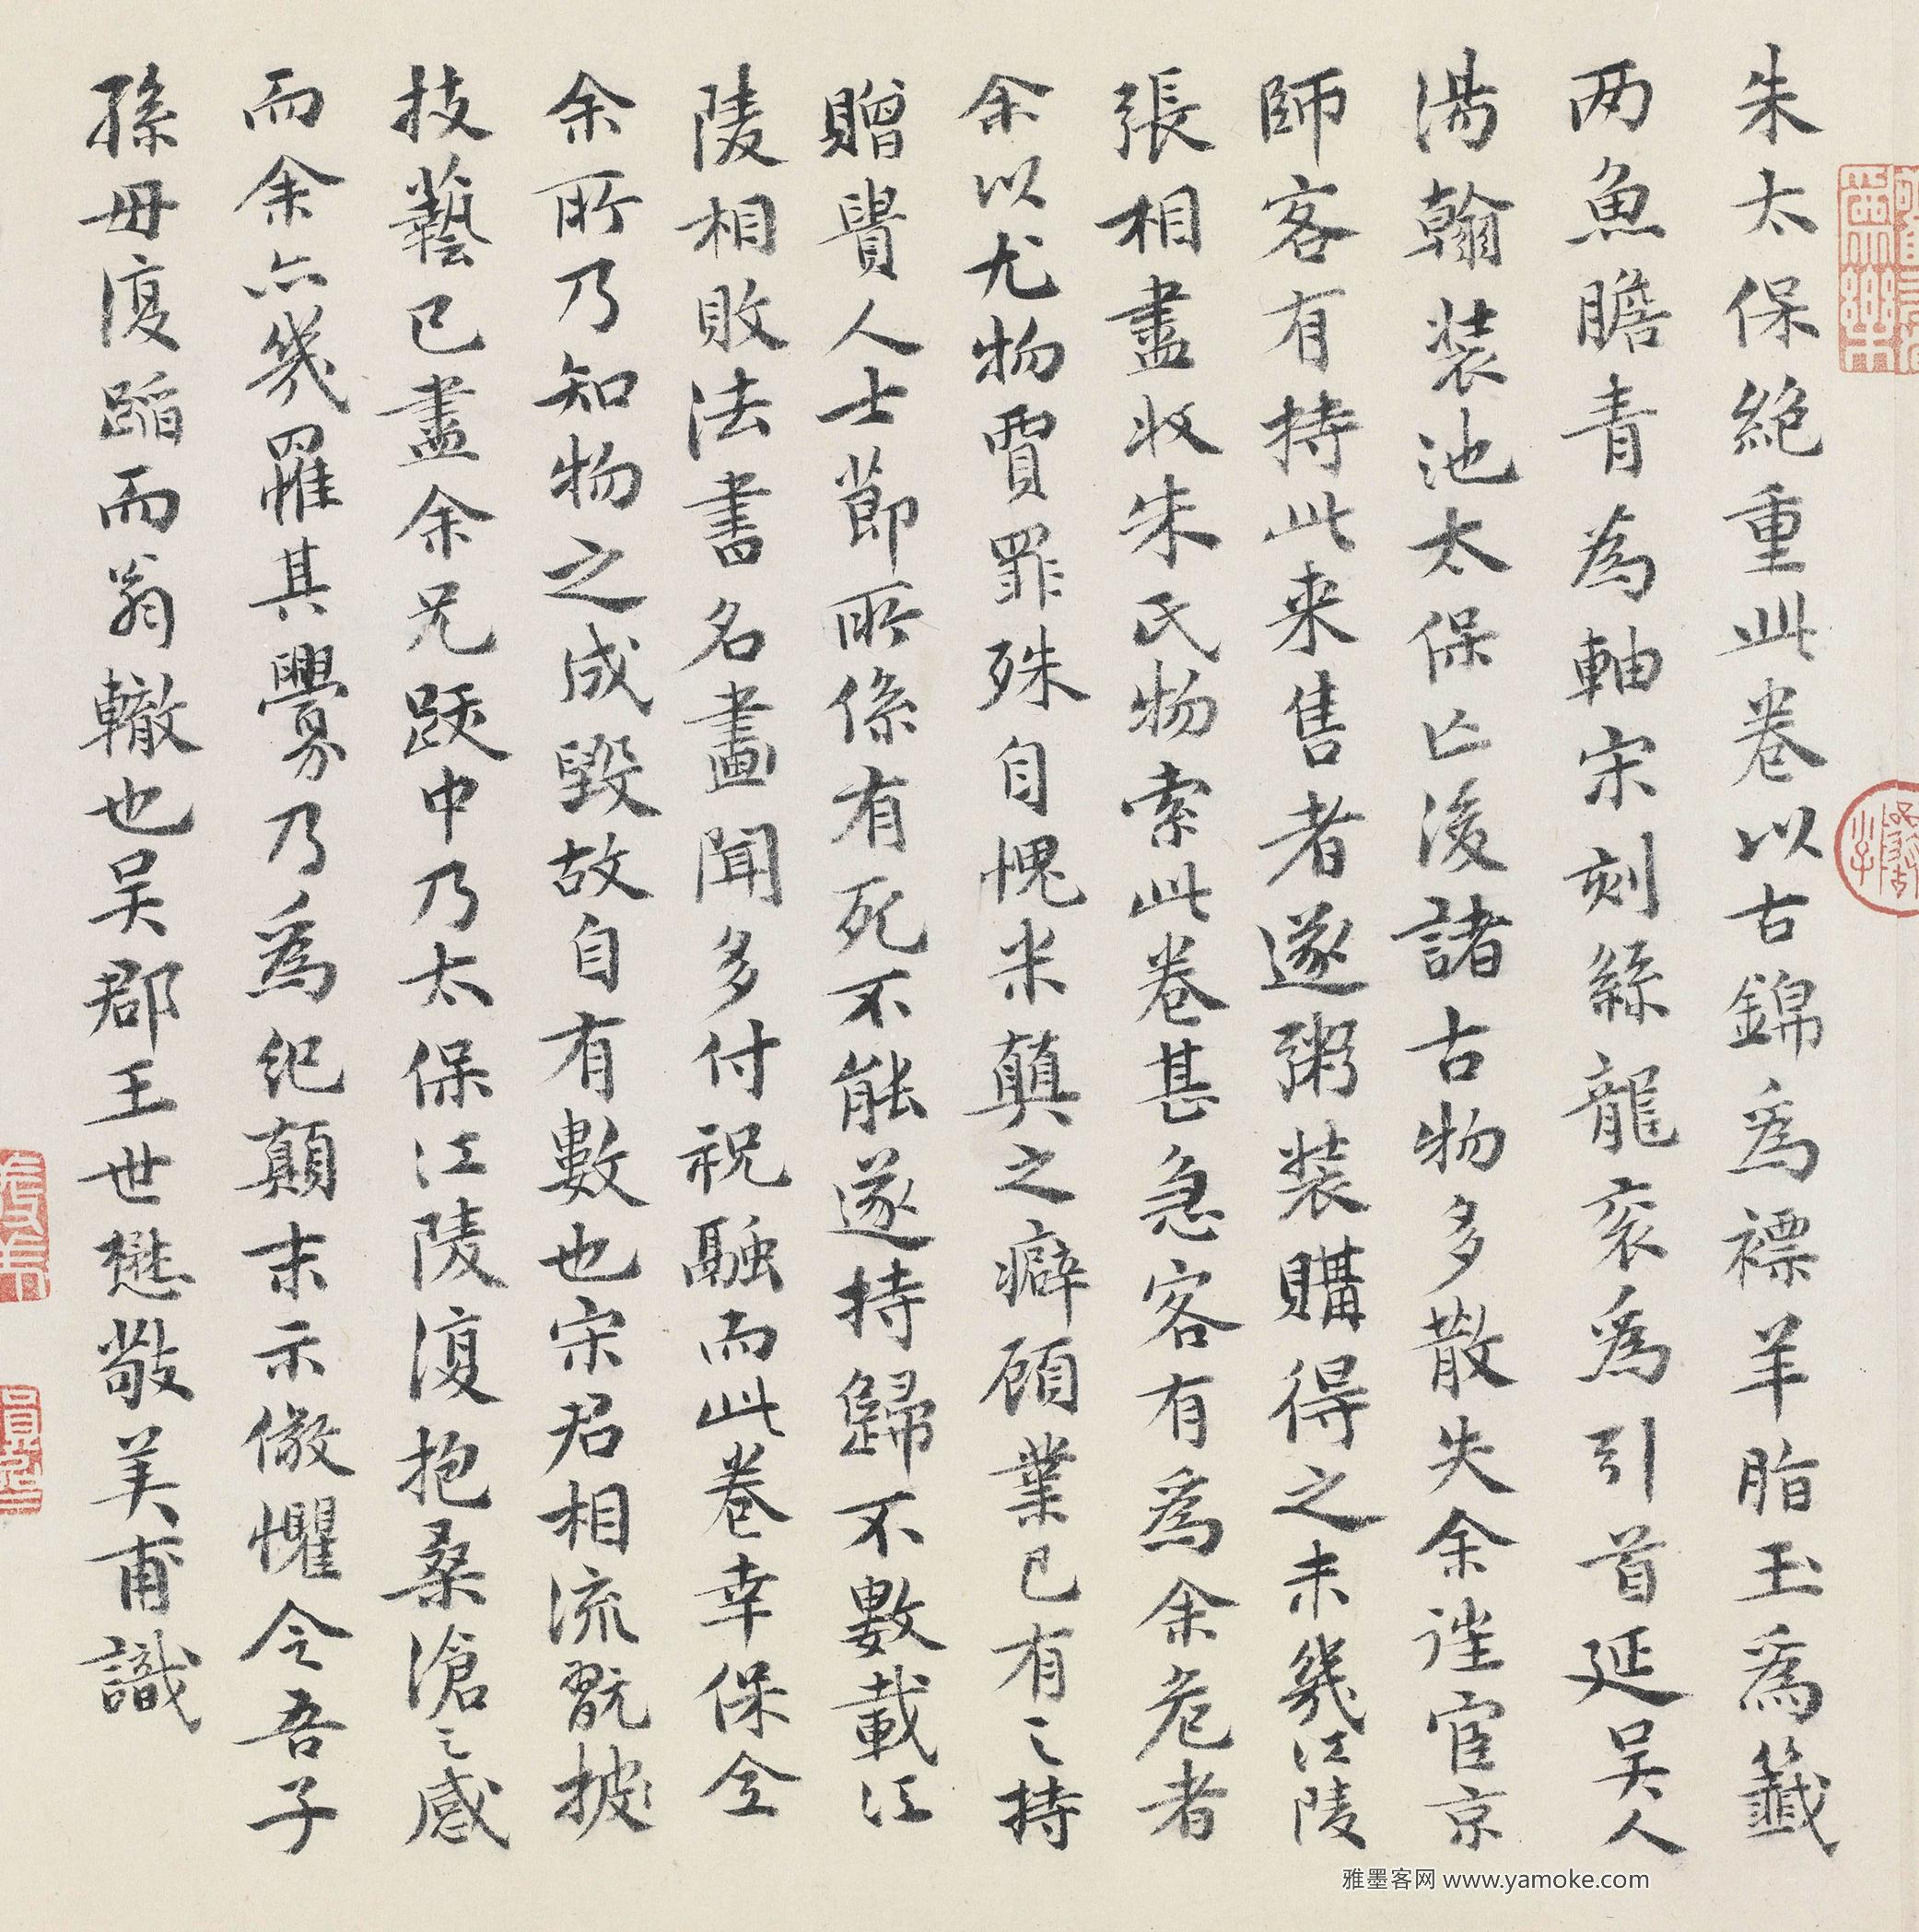 朱太保絶重此卷以古錦為褾羊脂玉為籤
两魚膽青為軸宋刻絲龍衮為引首延吴人
湯翰装池太保亡後諸古物多散失余謹宦京
師客有持此来售者遂粥装購得之未幾江陵
張相盡收朱氏物索此卷甚急客有為余危者
余以尤物賈罪殊自愧米顛之癖顧業已有之持
贈貴人士節所係有死不能遂持歸不數載江
陵相敗法書名畫聞多付祝融而此卷幸保全
余所乃知物之成毀故自有數也宋君相流翫披
技藝已盡余兄跋中乃太保江陵復抱桑滄之感
而余亦幾罹其釁乃為紀顛末示儆懼令吾子
孫毋復蹈而翁轍也吴郡王世懋敬美甫識
雅墨客网 www.yamoke.com